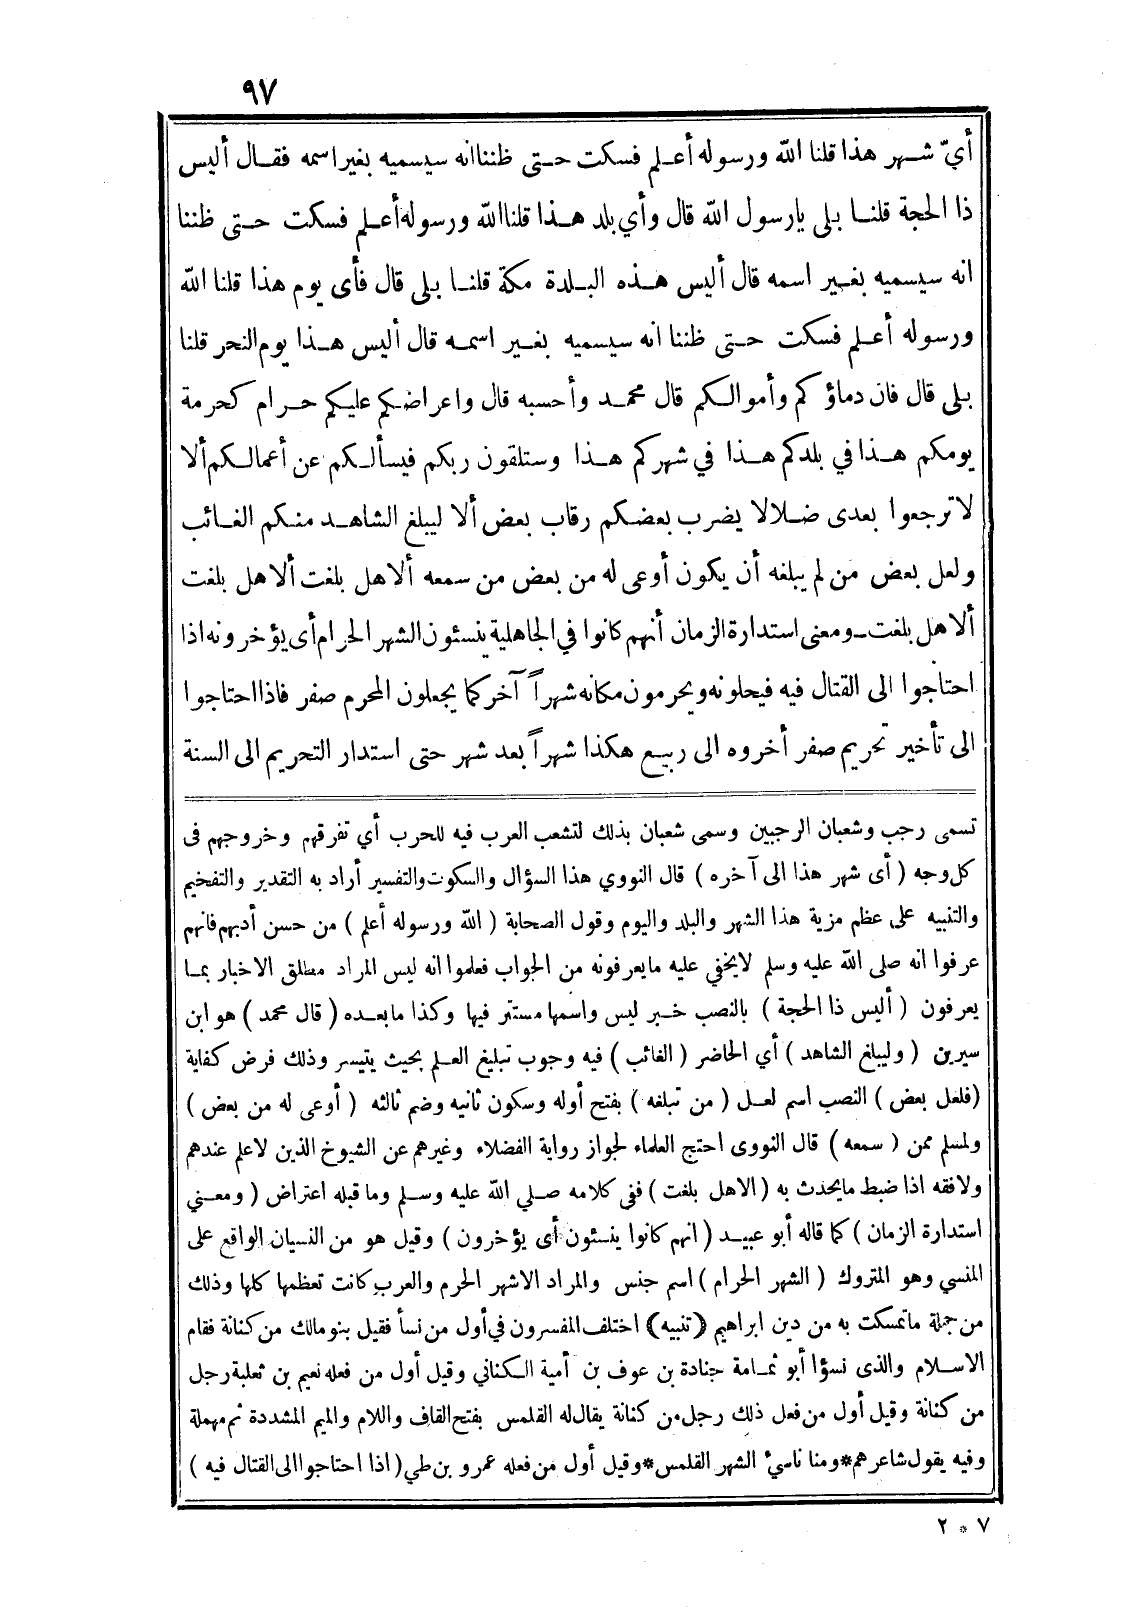 ٩٧
أيّ شهر هذا قلنا الله ورسوله أعلم فسكت حتى ظننا انه سيسميه بغير اسمه فقال أليس
ذا الحجة قلنا بلى يارسول الله قال وأي بلد هذا قلنا الله ورسوله أعلم فسكت حتى ظننا
انه سيسميه بغير اسمه قال أليس هذه البلدة مكة قلنا بلى قال فأى يوم هذا قلنا الله
ورسوله أعلم فسكت حتى ظننا انه سيسميه بغير اسمه قال أليس هذا يوم النحر قلنا
بلى قال فان دماؤكم وأموالكم قال محمد وأحسبه قال واعراضكم عليكم حرام كحرمة
يومكم هذا في بلدكم هذا في شهركم هذا وستلقون ربكم فيسألكم عن أعمالكم ألا
لا ترجعوا بعدى ضلالا يضرب بعضكم رقاب بعض ألا ليبلغ الشاهد منكم الغائب
ولعل بعض من لم يبلغه أن يكون أوعى له من بعض من سمعه ألا هل بلغت ألا هل بلغت
ألا هل بلغت ـ ومعنى استدارة الزمان أنهم كانوا في الجاهلية ينسئون الشهر الحرام أى يؤخرونه اذا
احتاجوا الى القتال فيه فيحلونه ويحرمون مكانه شهراً آخر كما يجعلون المحرم صفر فاذا احتاجوا
الى تأخير تحريم صفر أخروه الى ربيع هكذا شهراً بعد شهر حتى استدار التحريم الى السنة
تسمى رجب وشعبان الرجبين وسمى شعبان بذلك لتشعب العرب فيه للحرب أي تفرقهم وخروجهم فى
كل وجه ( أى شهر هذا الى آخره ) قال النووي هذا السؤال والسكوت والتفسير أراد به التقدير والتفخيم
والتنبيه على عظم مزية هذا الشهر والبلد واليوم وقول الصحابة ( الله ورسوله أعلم ) من حسن أدبهم فانهم
عرفوا انه صلى الله عليه وسلم لايخفي عليه مايعرفونه من الجواب فعلموا انه ليس المراد مطلق الاخبار بما
يعرفون ( أليس ذا الحجة ) بالنصب خبر ليس واسمها مستتر فيها وكذا مابعده ( قال محمد ) هو ابن
سيرين ( وليبلغ الشاهد ) أي الحاضر ( الغائب ) فيه وجوب تبليغ العلم بحيث يتيسر وذلك فرض كفاية
( فلعل بعض ) النصب اسم لعل ( من تبلغه ) بفتح أوله وسكون ثانيه وضم ثالثه ( أوعى له من بعض )
ولمسلم ممن ( سمعه ) قال النووى احتج العلماء لجواز رواية الفضلاء وغيرهم عن الشيوخ الذين لاعلم عندهم
ولافقه اذا ضبط مايحدث به ( الاهل بلغت ) ففى كلامه صلي الله عليه وسلم وما قبله اعتراض ( ومعني
استدارة الزمان ) كما قاله أبو عبيد ( انهم كانوا ينسئون أى يؤخرون ) وقيل هو من النسيان الواقع على
المنسي وهو المتروك ( الشهر الحرام ) اسم جنس والمراد الاشهر الحرم والعرب كانت تعظمها كلها وذلك
من جملة ماتمسكت به من دين ابراهيم ( تنبيه ) اختلف المفسرون في أول من نسأ فقيل بنو مالك من كنانة فقام
الاسلام والذى نسؤا أبو ثمامة جنادة بن عوف بن أمية الكناني وقيل أول من فعله نعيم بن ثعلبة رجل
من كنانة وقيل أول من فعل ذلك رجل من كنانة يقال له القلمس بفتح القاف واللام والميم المشددة ثم مهملة
وفيه يقول شاعرهم*ومنا ناسئ الشهر القلمس*وقيل أول من فعله عمرو بن طي ( اذا احتاجوا الى القتال فيه )
٧ * ٢